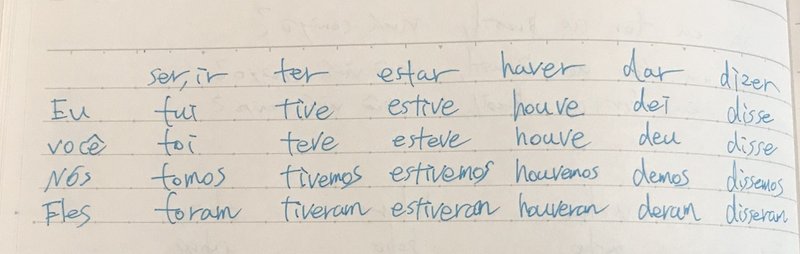 ser, ir ter estar haver dar dizer
Eu fui tive estive houve dei disse
você foi teve esteve houve deu disse
Nós fomos tivemos estivemos houvemos demos dissemos
Eles foram tiveram estiveran houveran deram disseran